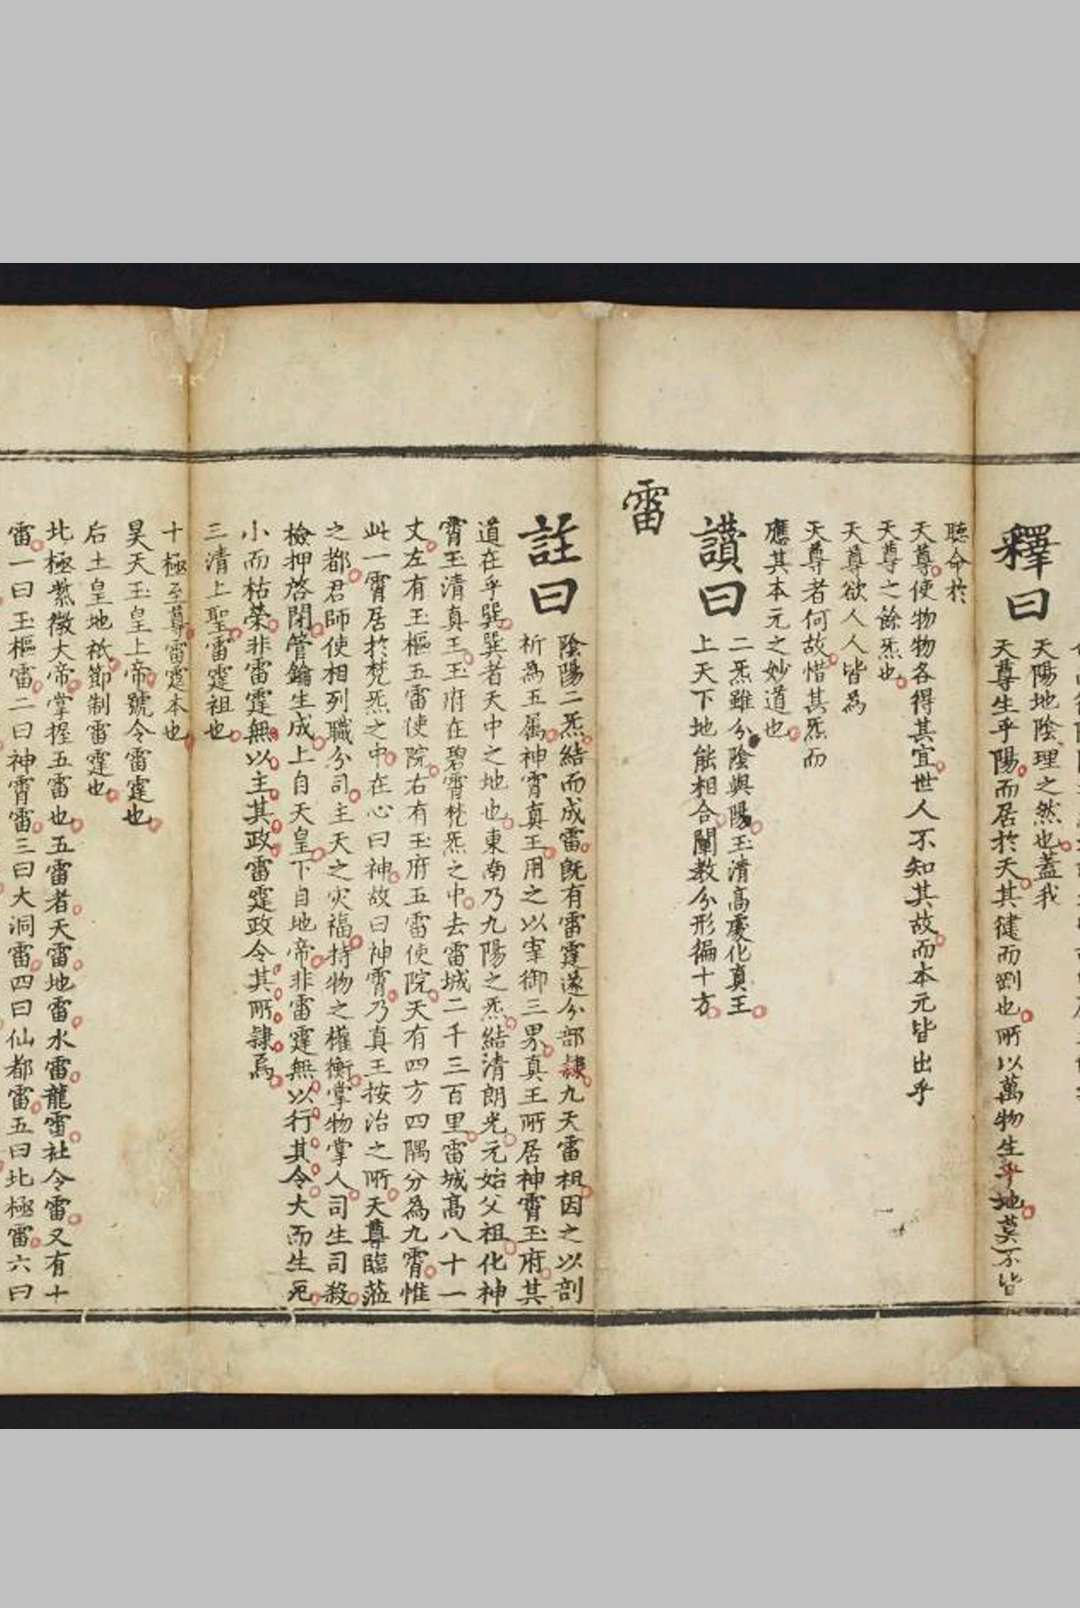 天陽地陰理之然也蓋我
釋曰
天尊生乎陽而居於天其徤而剛也所以萬物生乎地莫不皆
聽命於
天尊使物物各得其宜世人不知其故而本元皆出乎
天尊之餘炁也
天尊欲人人皆為
天尊者何故惜其炁而
應其本元之妙道也
讚曰
二炁雖分陰與陽玉清高慶化真王
上天下地能相合闡教分形徧十方
雷
註曰
陰陽二炁結而成雷既有雷霆遂分部隸九天雷祖因之以剖
析為五属神霄真王用之以宰御三界真王所居神霄玉府其
道在乎巽巽者天中之地也東南乃九陽之炁結清朗光元始父祖化神
霄玉清真王玉府在碧霄梵炁之中去雷城二千三百里雷城高八十一
丈左有玉樞五雷使院右有玉府五雷使院天有四方四隅分為九霄惟
此一霄居於梵炁之中在心曰神故曰神霄乃真王按治之所天尊臨蒞
之都君師使相列職分司主天之灾福持物之權衡掌物掌人司生司殺
檢押啓閉管鑰生成上自天皇下自地帝非雷霆無以行其令大而生死
小而枯榮非雷霆無以主其政雷霆政令其所隸焉
三清上聖雷霆祖也
十極至尊雷霆本也
昊天玉皇上帝號令雷霆也
后土皇地祇節制雷霆也
北極紫微大帝掌握五雷也五雷者天雷地雷水雷龍雷社令雷又有十
雷一曰玉樞雷二曰神霄雷三曰大洞雷四曰仙都雷五曰北極雷六曰